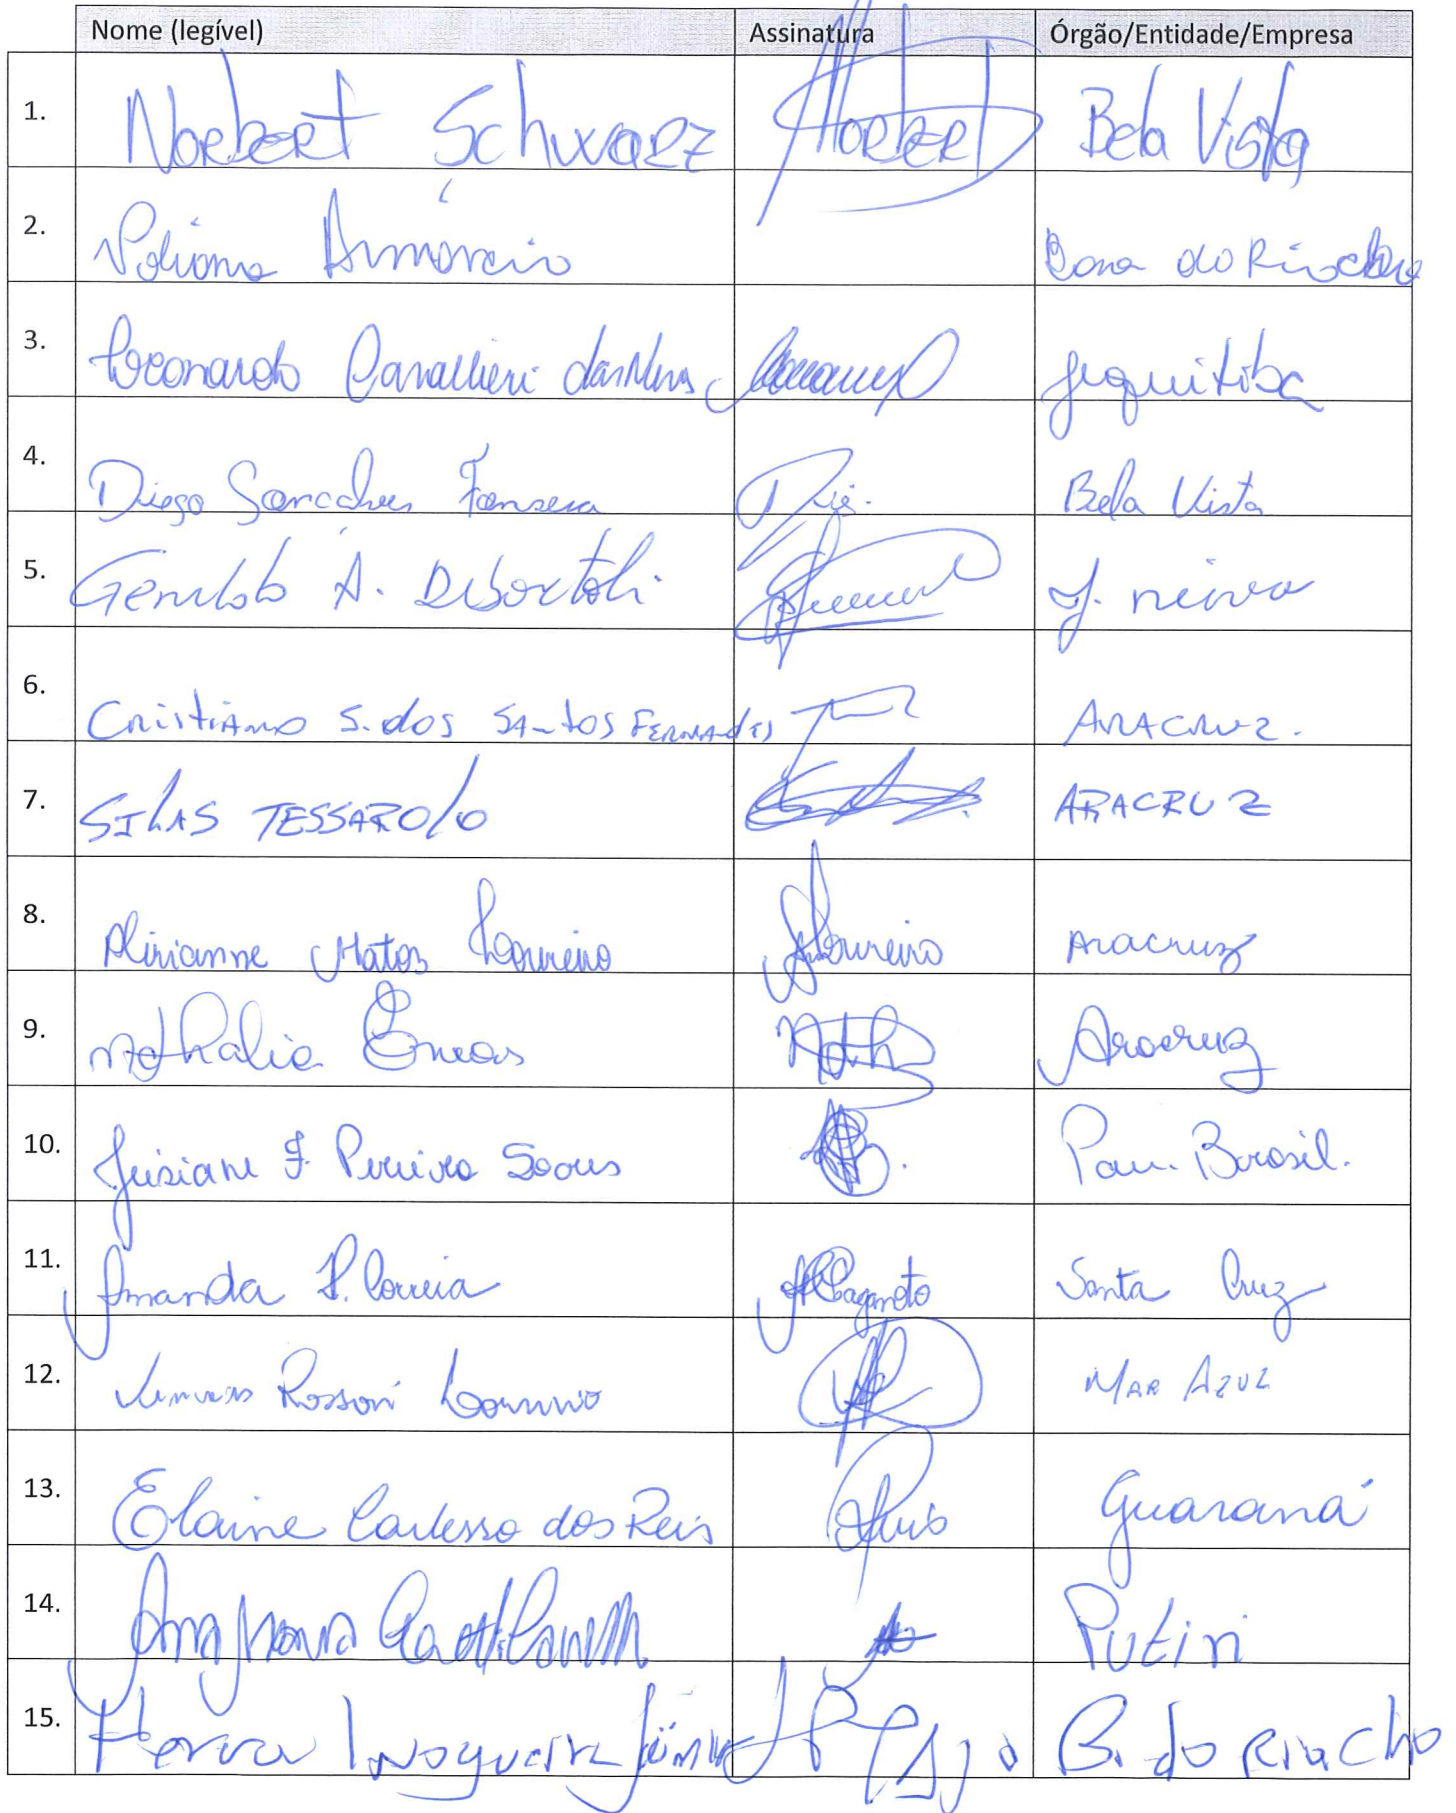 Nome (legível) Assinatura Órgão/Entidade/Empresa
1. Norbert Schwarz Norbert Bela Vista
2. Poliana do Riacho
3. Leonardo Cavallieri das Jequitiba
4. Diego Goncalves Fonseca Bela Vista
5. A. J. neiva
6. Cristiano S. dos Santos Fernandes ARACRUZ.
7. SILAS TESSAROLO ARACRUZ
8. Matos Loureiro Loureiro Aracruz
9. Nathalia Nath Aracruz
10. F. Pereira Soares Pau. Brasil.
11. Amanda P. Correia Santa Cruz
12. Rossoni Loureiro MAR AZUL
13. Elaine Carlesso dos Reis Reis Guaraná
14. Ana Putiri
15. Nogueira Júnior B. do Riacho